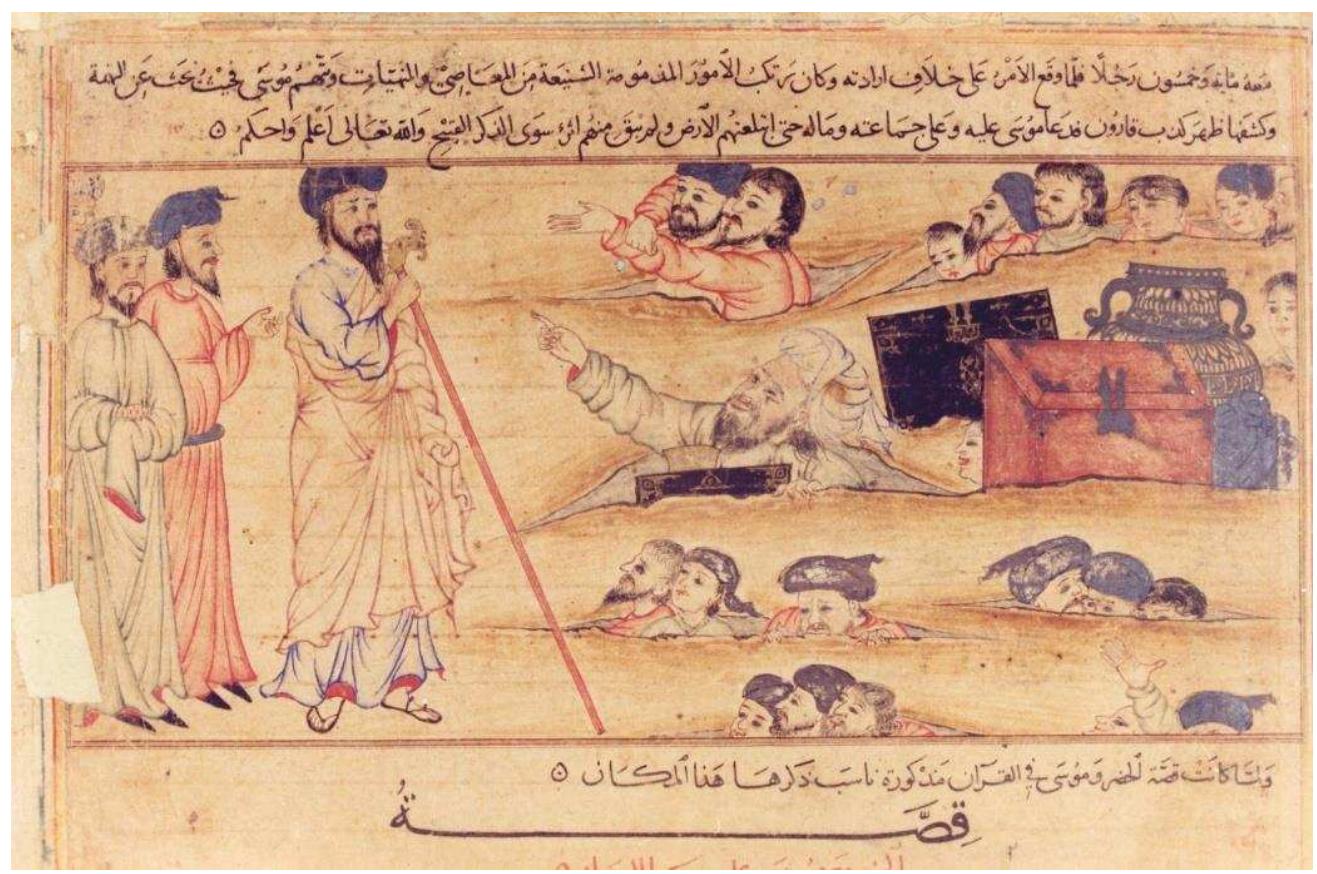 معه مائة وخمسون رجلا فلما وقع الامر على خلاف ارادته وكان يرتكب الأمور المذمومة الشنيعة من المعاصي والمنهيات ويتهم موسى فحيث بحث عن التهمة
وكشفها ظهر كذب قارون فدعا موسى عليه وعلى جماعته وماله حتى ابتلعتهم الأرض ولم يبق منهم اثر سوى الذكر القبيح والله تعالى أعلم واحكم
ولما كانت قصة الخضر وموسى في القرآن مذكورة ناسب ذكرها هذا المكان
قصة